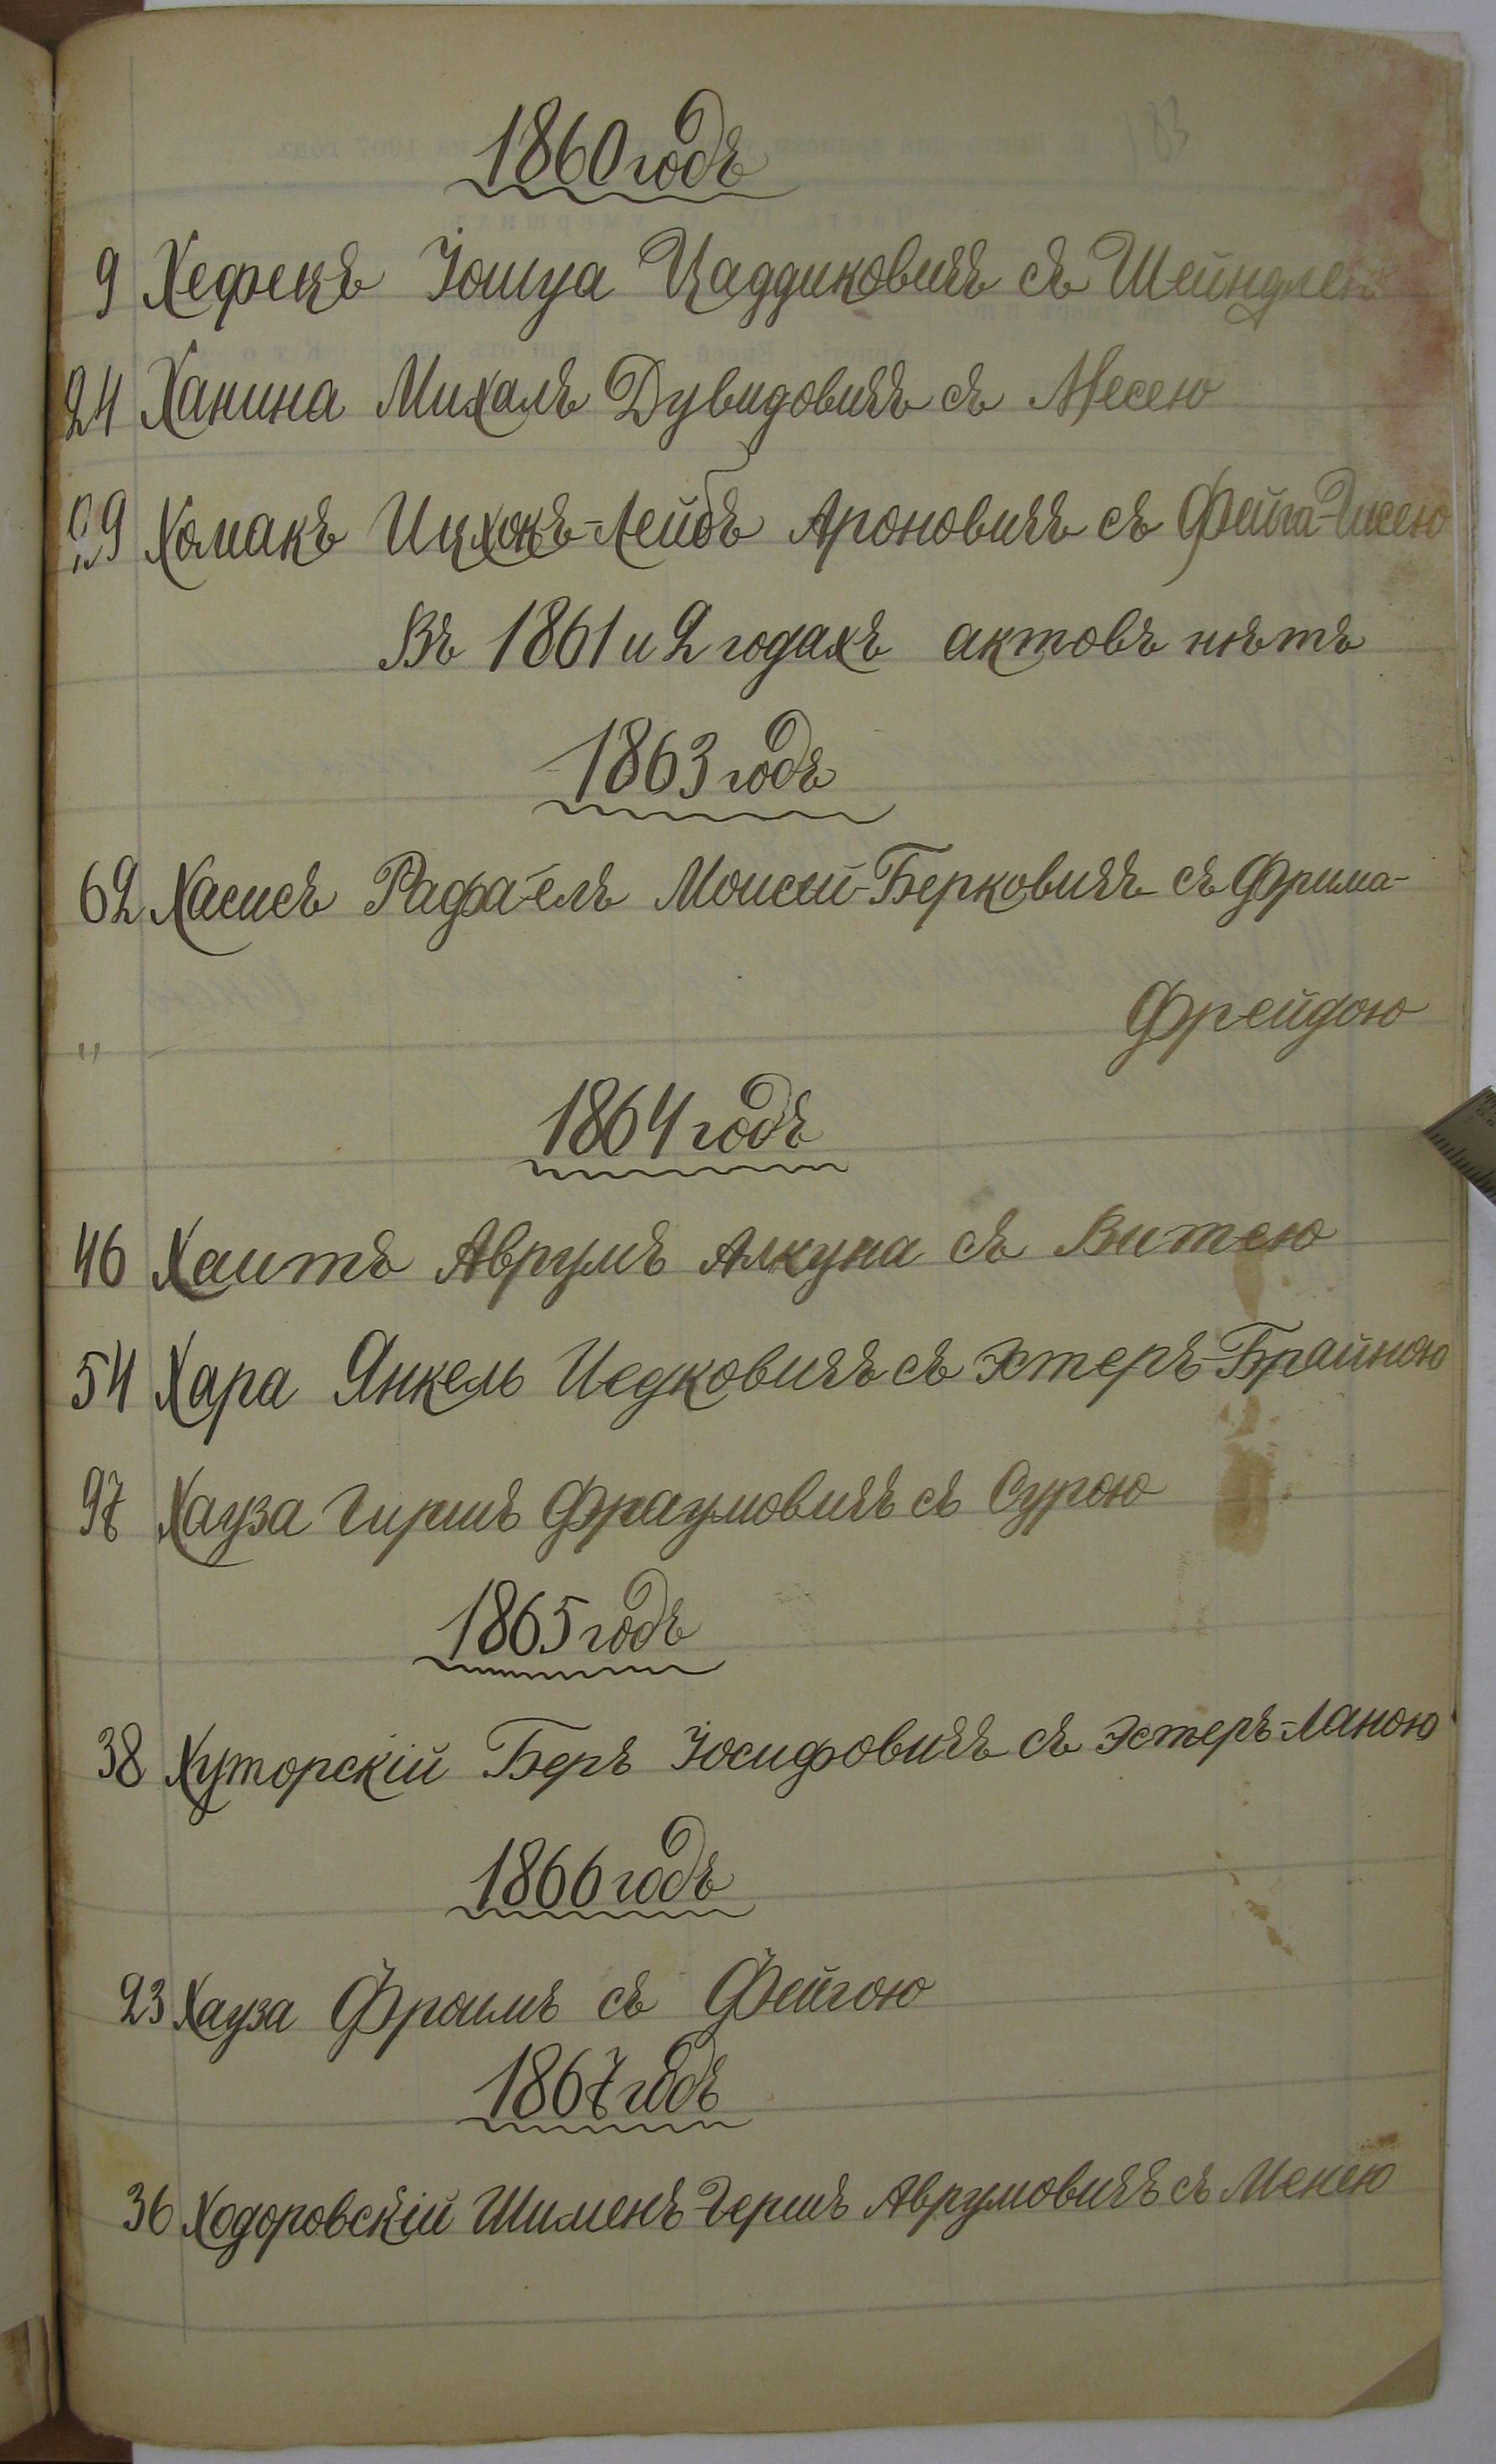 1860 годъ
9 Хефецъ Іошуа Цаддиковичъ съ Шейндлею
24 Ханина Михаль Дувидовичъ съ Месею
Хомакъ Ицхокъ-Лейбъ Ароновичъ съ Фейга-Гисею
Въ 1861 и 2 годахъ актовъ нѣтъ
1863 годъ
62 Хасисъ Рафа-елъ Моисей-Берковичъ съ Фрима-
Фрейдою
"
1864 годъ
46 Хаитъ Аврумъ съ Витею
54 Хара Янкель Иедковичъ съ Эстеръ-Брайною
97 Хауза Гиршъ Фраумовичъ съ Сурою
1865 годъ
38 Хуторскій Беръ Іосифовичъ съ Эстеръ-Ланою
1866 годъ
23 Хауза Фроимъ съ Фейгою
1867 годъ
36 Ходоровскій Шименъ-Гершъ Аврумовичъ съ Менею